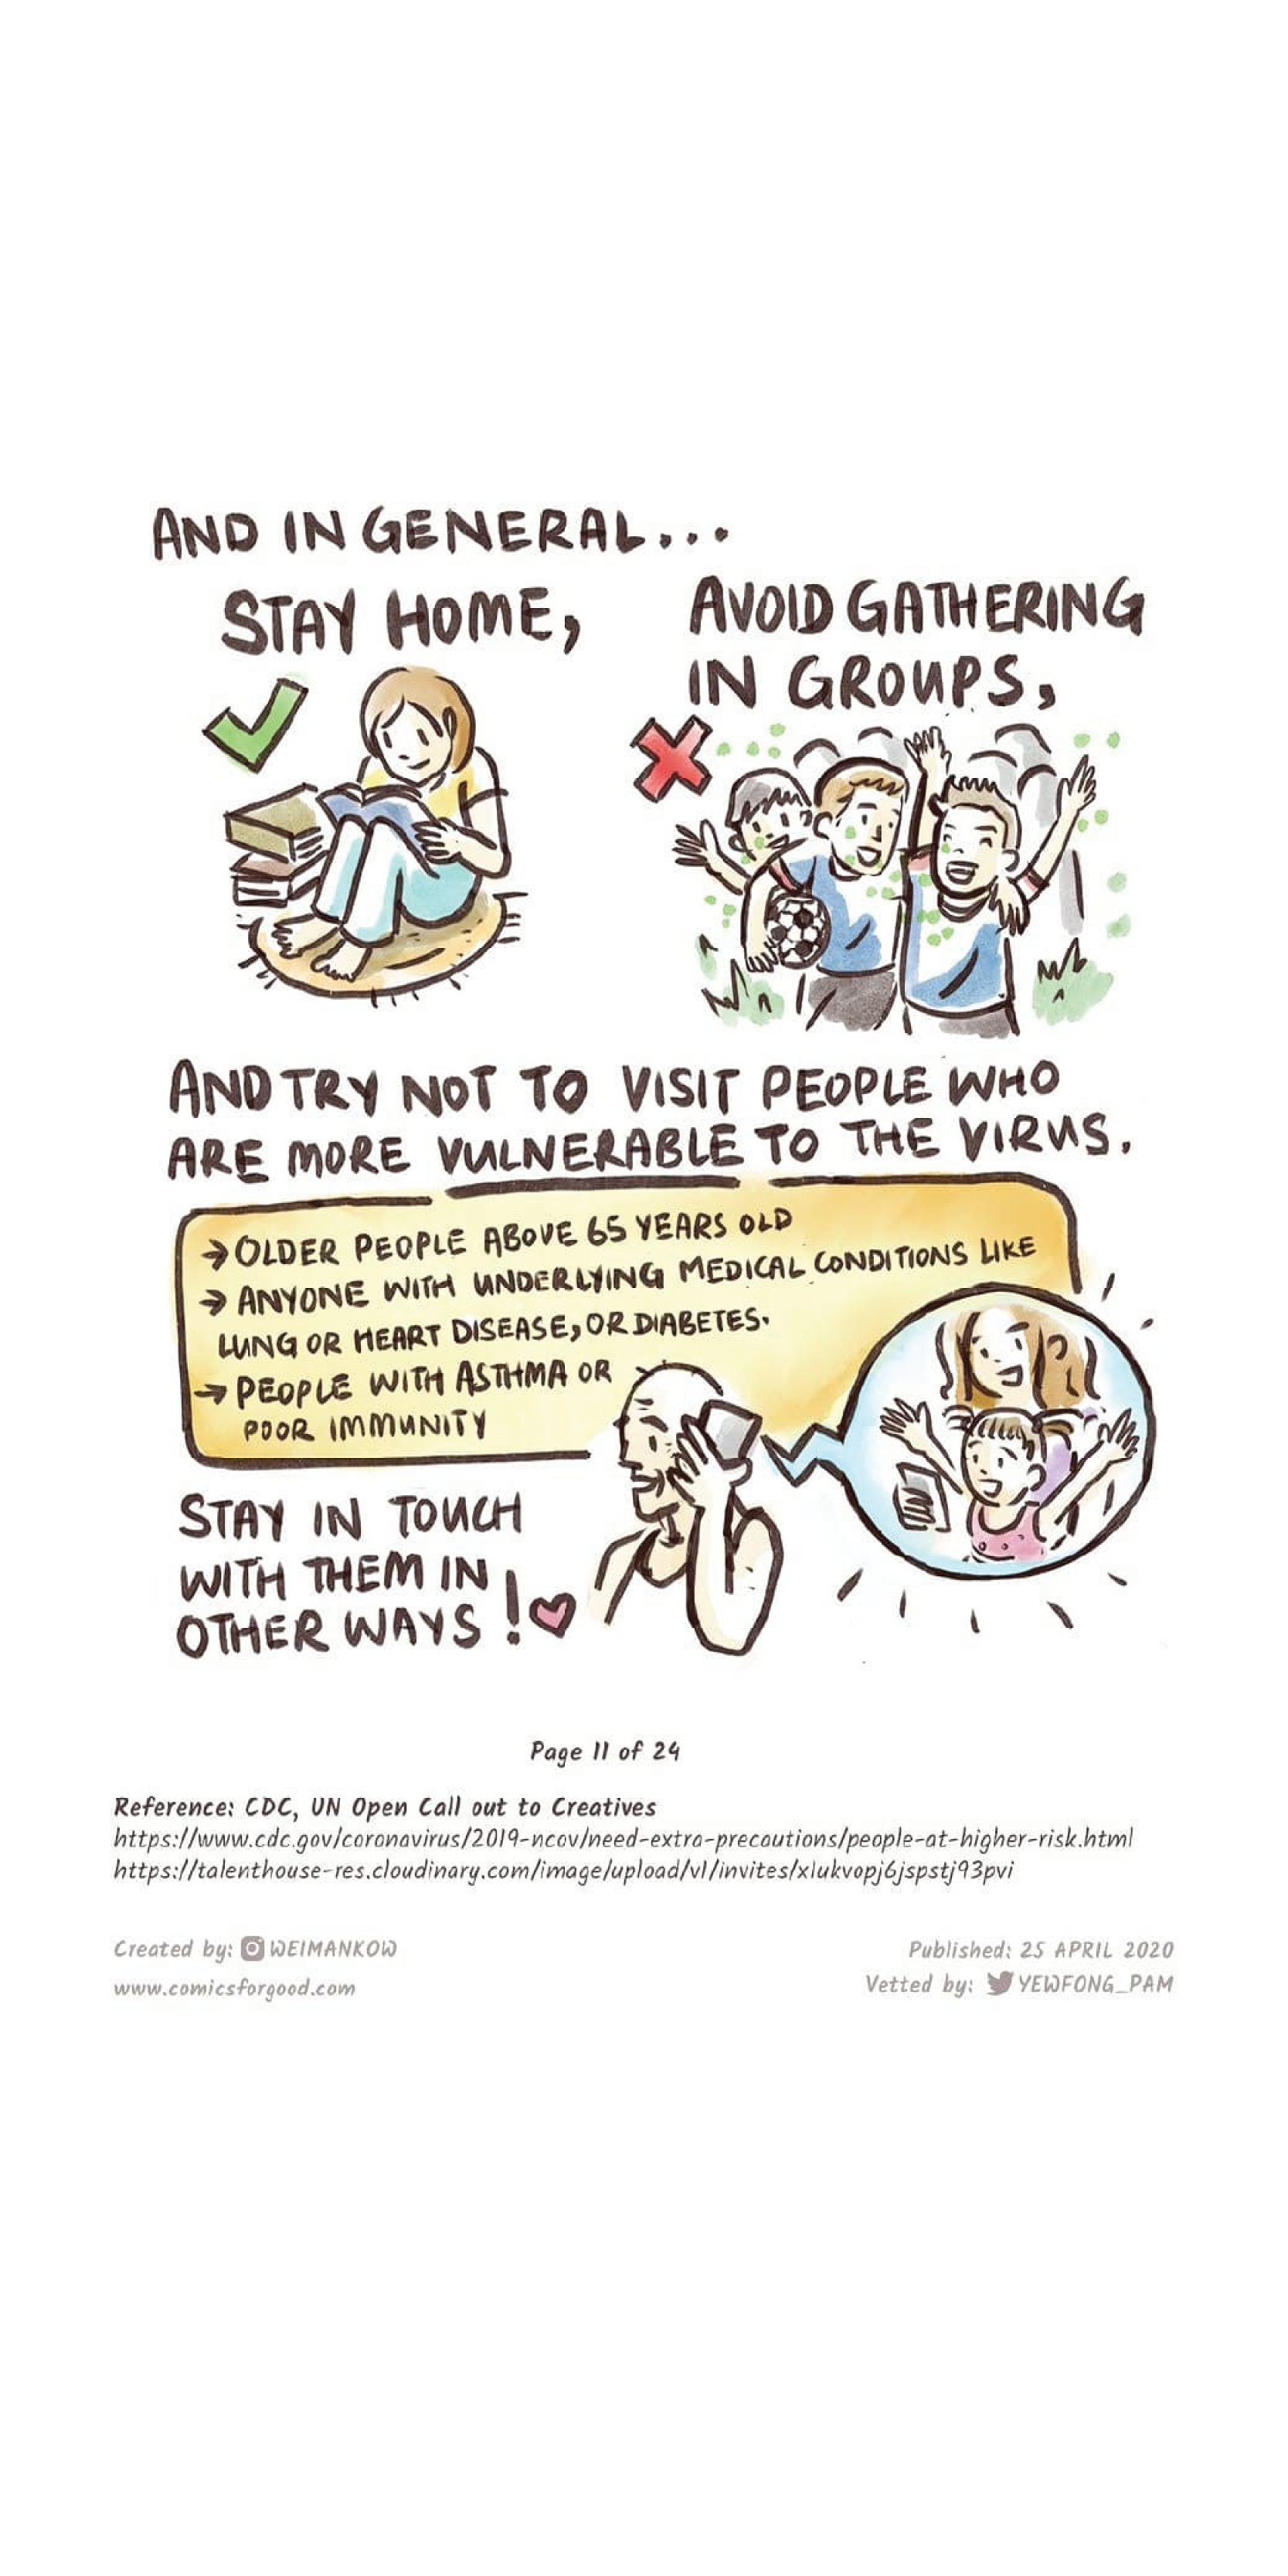 AND IN GENERAL...
STAY HOME,
AVOID GATHERING
IN GROUPS,
AND TRY NOT TO VISIT PEOPLE WHO
ARE MORE VULNERABLE TO THE VIRUS.
→ OLDER PEOPLE ABOVE 65 YEARS OLD
→ ANYONE WITH UNDERLYING MEDICAL CONDITIONS LIKE
LUNG OR HEART DISEASE, OR DIABETES.
→ PEOPLE WITH ASTHMA OR
POOR IMMUNITY
STAY IN TOUCH
WITH THEM IN
OTHER WAYS!
Page 11 of 24
Reference: CDC, UN Open Call out to Creatives
https://www.cdc.gov/coronavirus/2019-ncov/need-extra-precautions/people-at-higher-risk.html
https://talenthouse-res.cloudinary.com/image/upload/v1/invites/xlukvopj6jspstj93pvi
Created by: WEIMANKOW
www.comicsforgood.com
Published: 25 APRIL 2020
Vetted by: YEWFONG_PAM